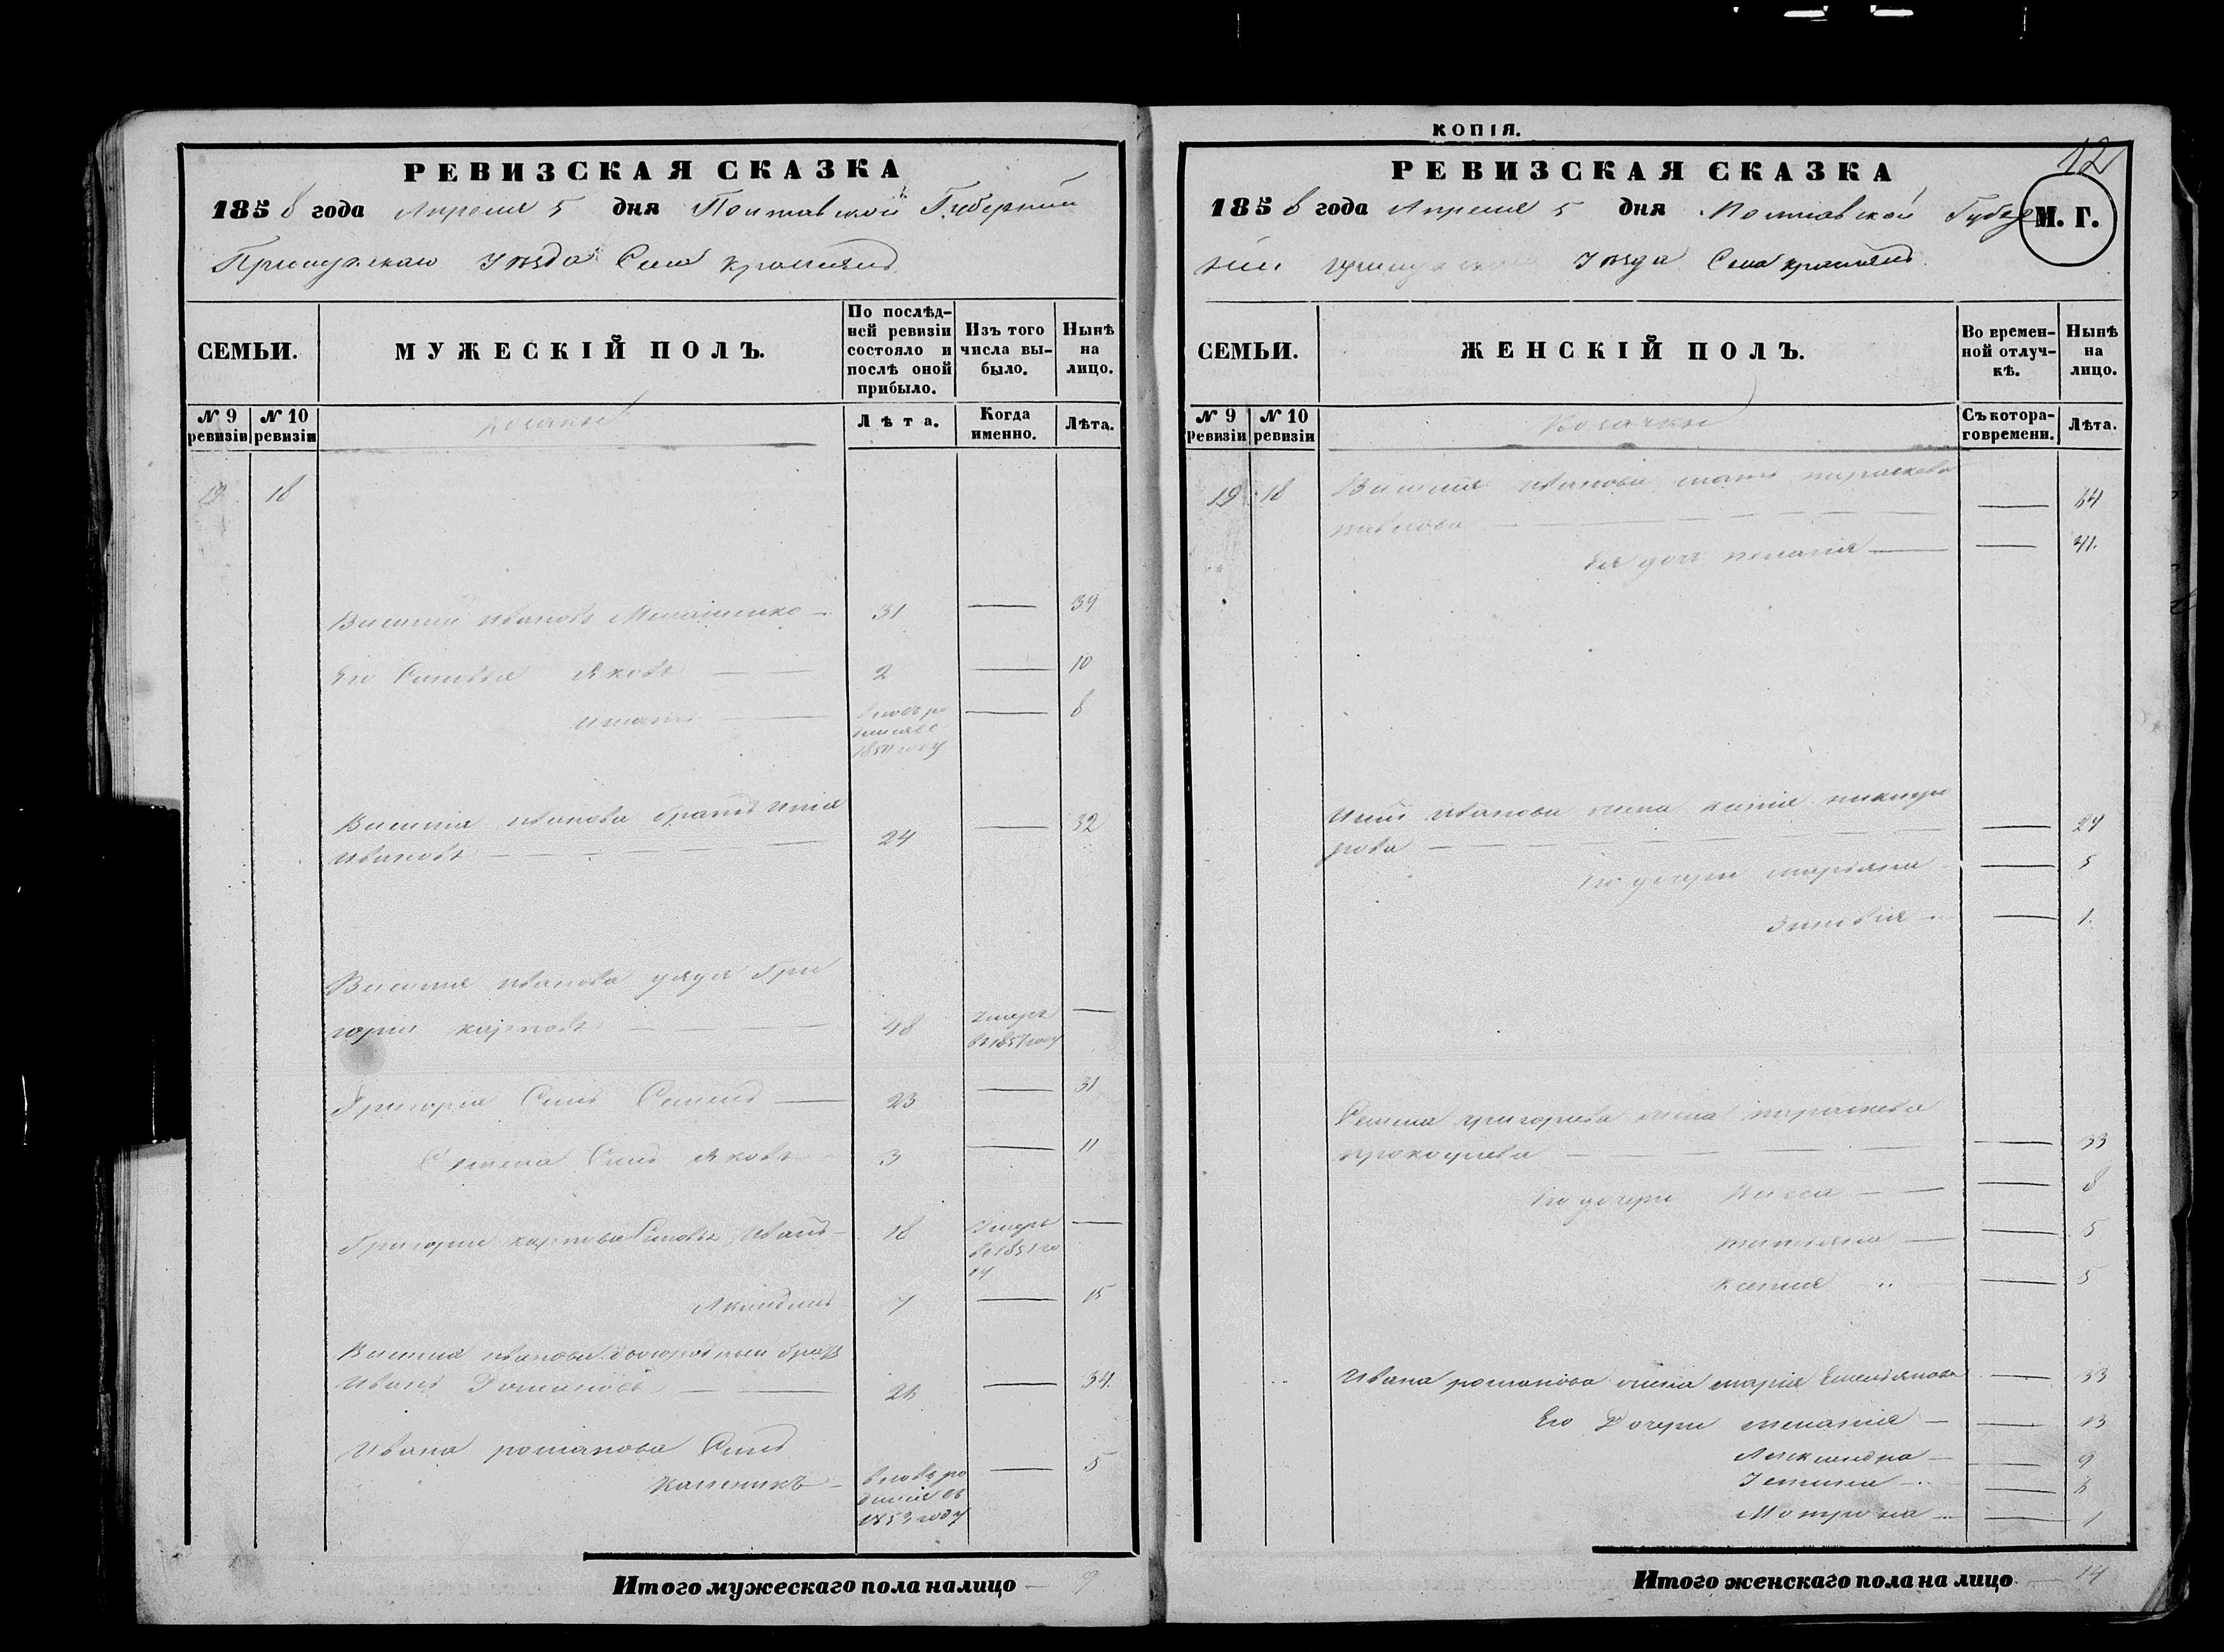 РЕВИЗСКАЯ СКАЗКА
1858 года Апреля 5 дня Полтавской Губернии
Прилуцкаго Уезда Села
СЕМЬИ.
МУЖЕСКІЙ ПОЛЪ.
По послѣд-
ней ревизіи
состояло и
послѣ оной
прибыло.
Изъ того
числа вы-
было.
Нынѣ
на
лицо.
№ 9
ревизіи
№ 10
ревизіи
Козаки
Лѣта.
Когда
именно.
Лѣта.
19 18
Василий Ивановъ 31 — 39
Его Сыновья Яковъ — — 2 — 10
Игнатъ — — вновь ро — 8
дился в
1850 году
Василія Иванова братъ Илья
Ивановъ — — — 24 — 32
Василия Иванова дядя Гри
горий Карповъ — — 48 Умеръ —
въ 1857 году
Григория Сынъ Семенъ — 23 — 31
Семена Сынъ Яковъ 3 — 11
Григория Карпова Сыновья Иванъ 18 Умеръ —
в 1851 го
ду
Акиндинъ 7 — 15
Василия Иванова двоюродный братъ
Иванъ Романовъ — — 26 — 34.
Ивана романова Сынъ
Каленикъ — вновь ро — 5
дился въ
1853 году
Итого мужескаго пола налицо — 9
КОПІЯ.
12
РЕВИЗСКАЯ СКАЗКА
1858 года Апреля 5 дня Полтавской Губер
М. Г.
нии Прилуцкаго Уезда Села
СЕМЬИ.
ЖЕНСКІЙ ПОЛЪ.
Во времен-
ной отлуч-
кѣ.
Нынѣ
на
лицо.
№ 9
ревизіи
№ 10
ревизіи
Козачки
Съ котора-
го времени.
Лѣта.
19 18 Василия Иванова мать параскева
павлова — — — 64
Ея дочь пелагия — — 41.
Ильи Иванова жена Ксения никифо
рова — — — 24
Его дочери марьяна — 5
Зиновия — 1.
Семена григорьева жена параскева
прокофиева — — — 33
Его дочери Васса — — 8
татьяна — — 5
Ксения — 5
Ивана романова жена мария Емельянова — 33
Его Дочери мелания — — 13
Александра — — 9
Устина — — 6
Мотрона — — 1
Итого женскаго пола на лицо — 14